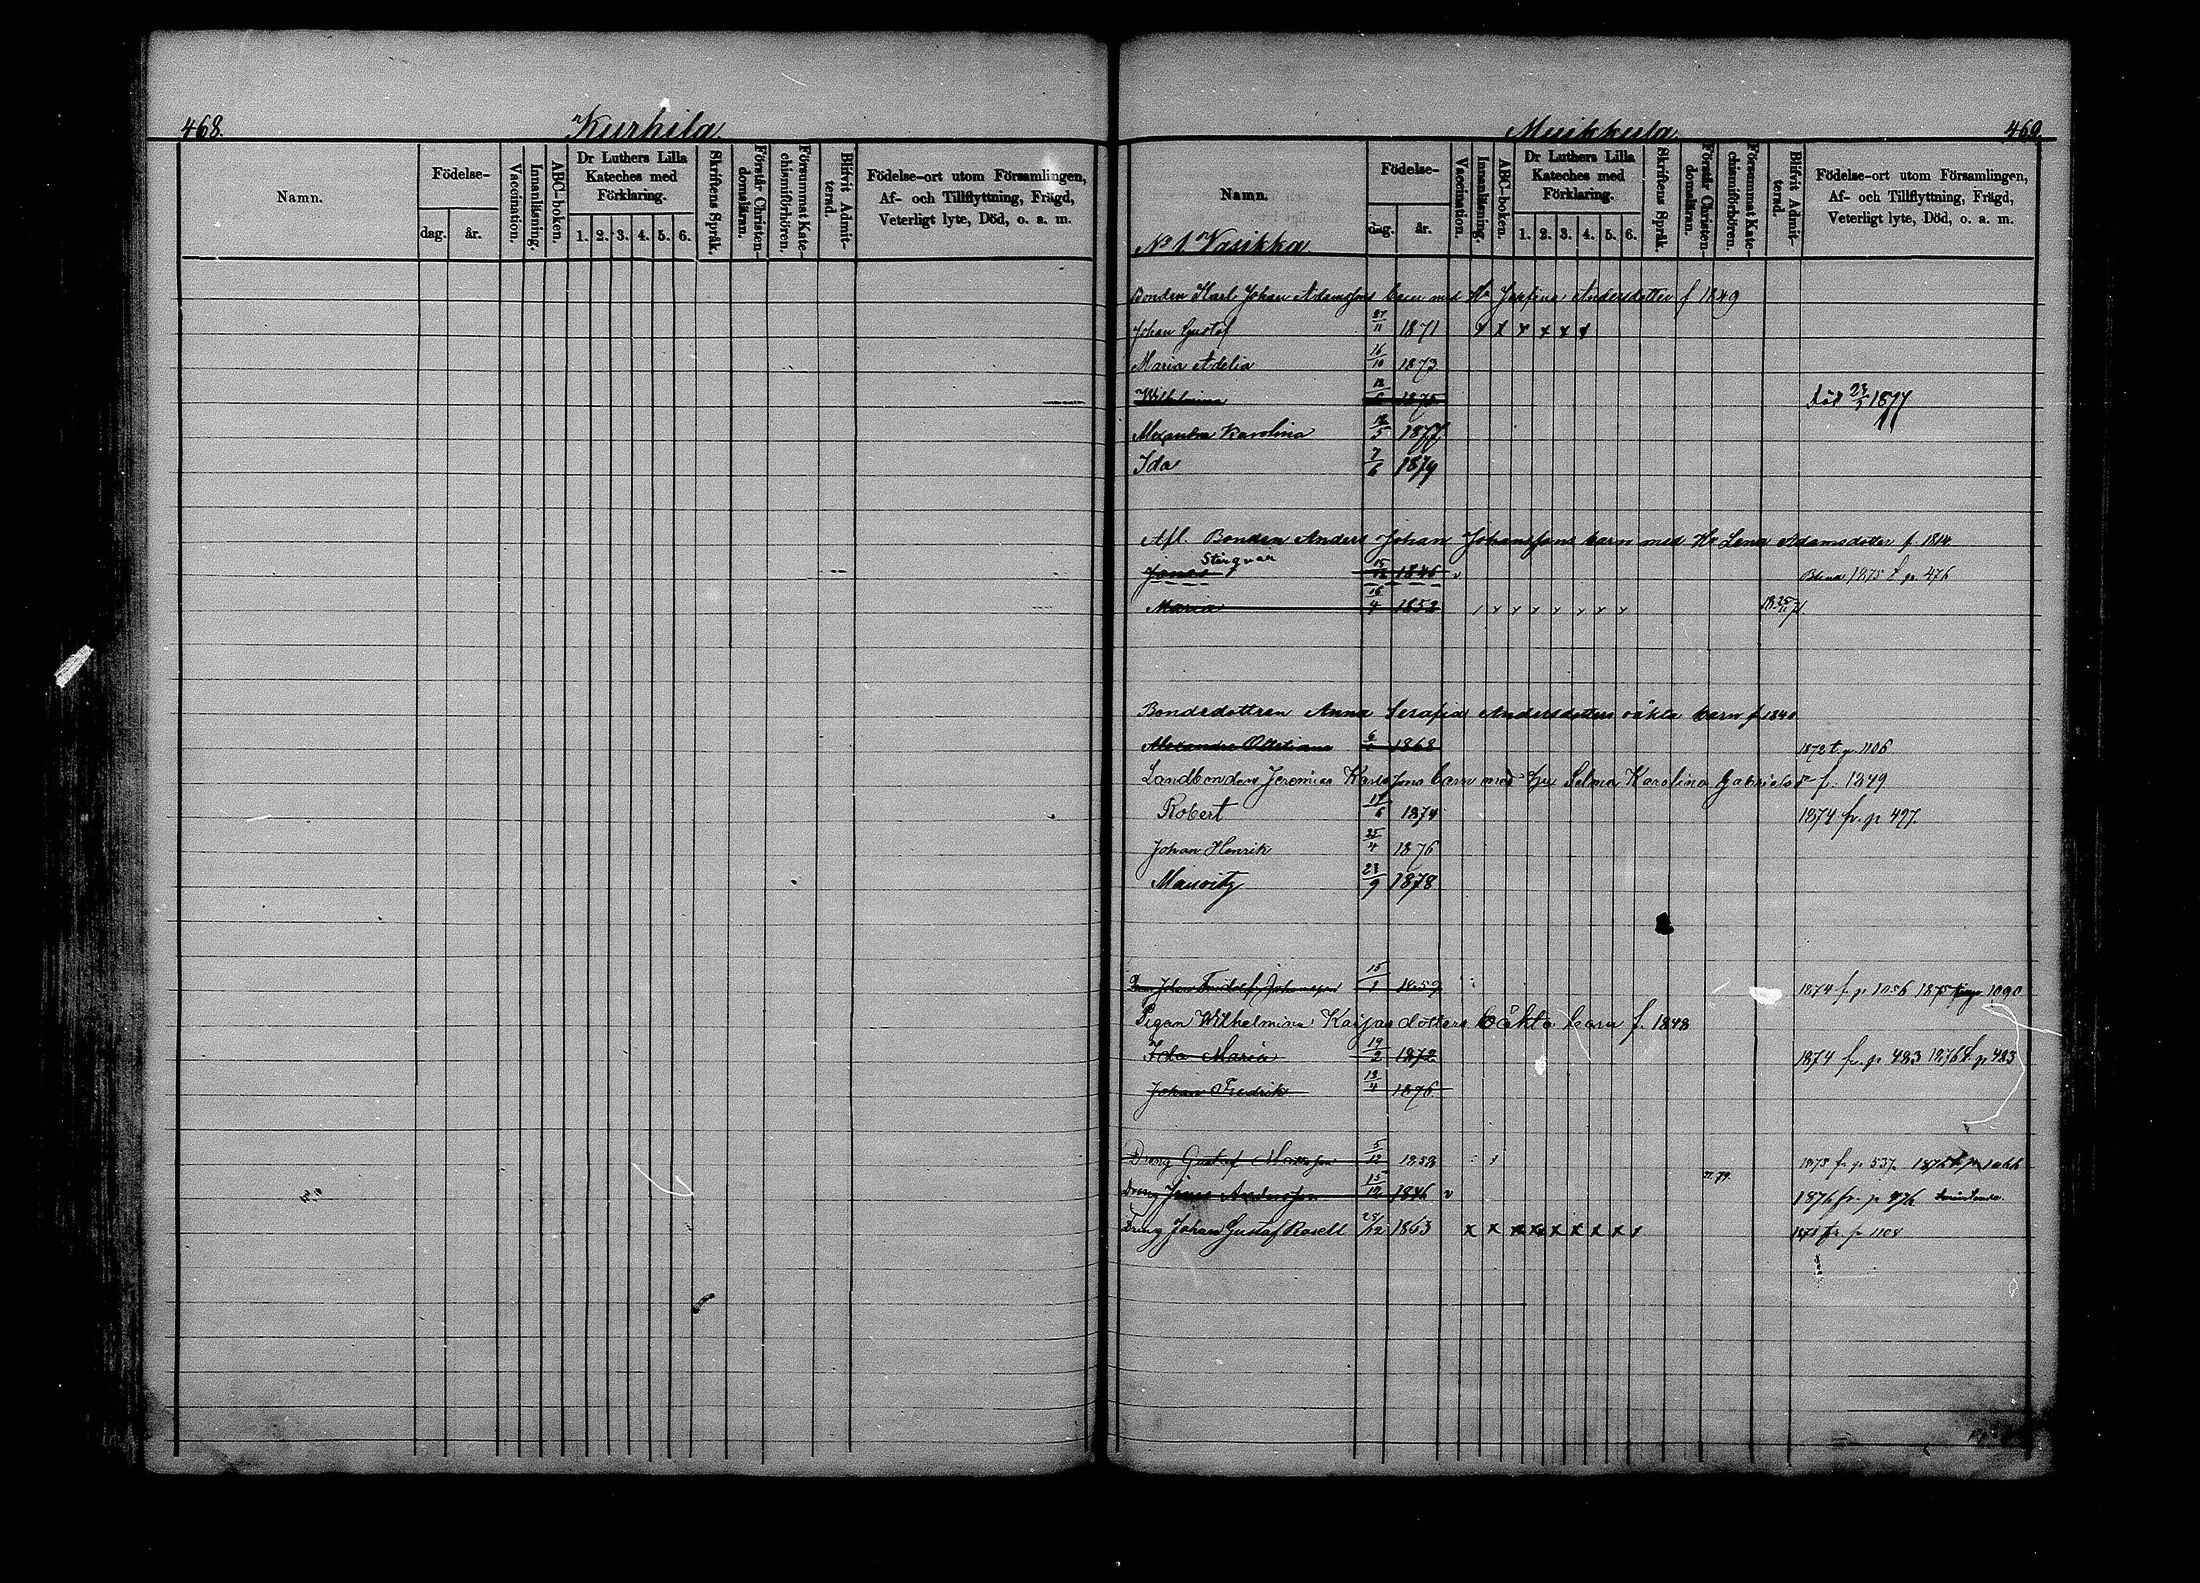 468.
Kurhila
Namn.
Födelse-
dag.
år.
Vaccination.
Innanläsning.
ABC-boken.
Dr Luthers Lilla
Kateches med
Förklaring.
1. 2. 3. 4. 5. 6.
Skriftens Språk.
Förstår Christen-
domsläran.
Försummat Kate-
chismiförhören.
Blifvit Admit-
terad.
Födelse-ort utom Församlingen,
Af- och Tillflyttning, Frägd,
Veterligt lyte, Död, o. a. m.
Musikkula
469.
Namn.
Födelse-
dag.
år.
Vaccination.
Innanläsning.
ABC-boken.
Dr Luthers Lilla
Kateches med
Förklaring.
1. 2. 3. 4. 5. 6.
Skriftens Språk.
Förstår Christen-
domsläran.
Försummat Kate-
chismiförhören.
Blifvit Admit-
terad.
Födelse-ort utom Församlingen,
Af- och Tillflyttning, Frägd,
Veterligt lyte, Död, o. a. m.
No 1 Vasikka
Bonden Karl Johan Adamssons barn med Andersdotter f 1849
Johan Gustaf 27/11 1871 x x x x x x
Maria Adelia 16/10 1873
Wilhelmina död 23/3 1877
Alexandra Karolina 12/5 1877
Ida 7/6 1879
Afl. Bonden Anders Johan Johanssons barn med Hu Lena Adamsdotter f 1814
Jonas 15/12 1846 v Blind 1875 t. p 476
Maria 16/4 1852
Bondedottren Anna Serafia Andersdotters oäkta barn f 1840
Alexandra 1868 1872 t. p 1106
Landbonden Jeremias barn med Hu Selma Karolina Gabrielsdr f. 1849
Robert 17/6 1874 1874 fr. p 497
Johan Henrik 25/4 1876
Mauritz 23/9 1878
Johan 15/1 1859 1874 f. p 1056 1875 1090
Pigan Wilhelmina Kaijasdotters oäkta barn f. 1848
Ida Maria 19/2 1872 1874 fr. p 483 1876 t. p 483
Johan Fredrik 13/4 1876
Dreng Gustaf Mattsson 5/12 1858 1875 fr p 537 1876 t. p 1066
Dreng Jonas Andersson 15/12 1846 v 1876 fr. p 476
Dreng Johan Gustaf Rosell 28/12 1863 x x x x x x x x 1878 fr p 1108